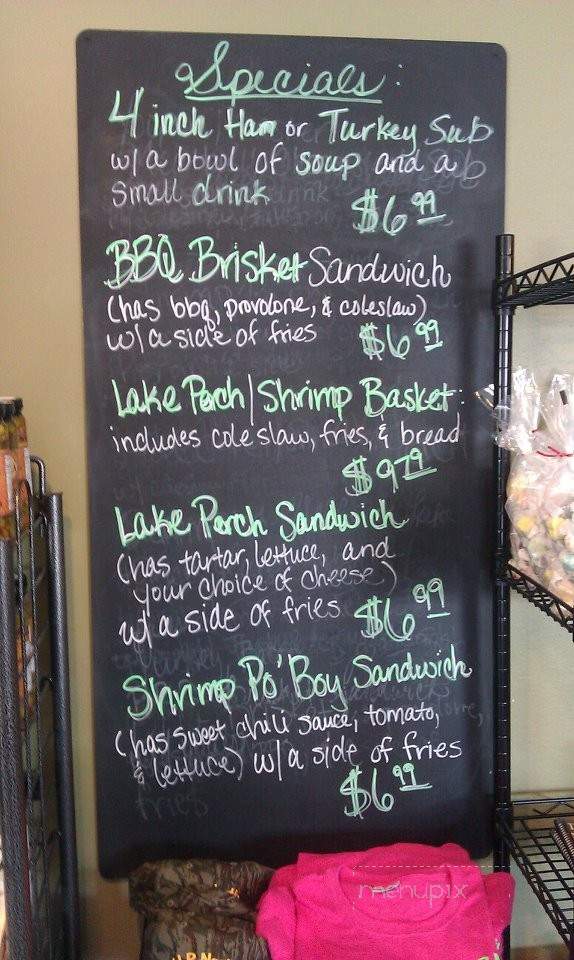 Specials:
4 inch Ham or Turkey Sub
w/ a bowl of soup and a
small drink
$6.99
BBQ Brisket Sandwich
(has bbq, provolone, & coleslaw)
w/ a side of fries $6.99
Lake Perch/Shrimp Basket:
includes cole slaw, fries, & bread
$9.79
Lake Perch Sandwich
(has tartar, lettuce, and
your choice of cheese)
w/ a side of fries $6.99
Shrimp Po' Boy Sandwich
(has sweet chili sauce, tomato,
& lettuce) w/ a side of fries
$6.99
menupix